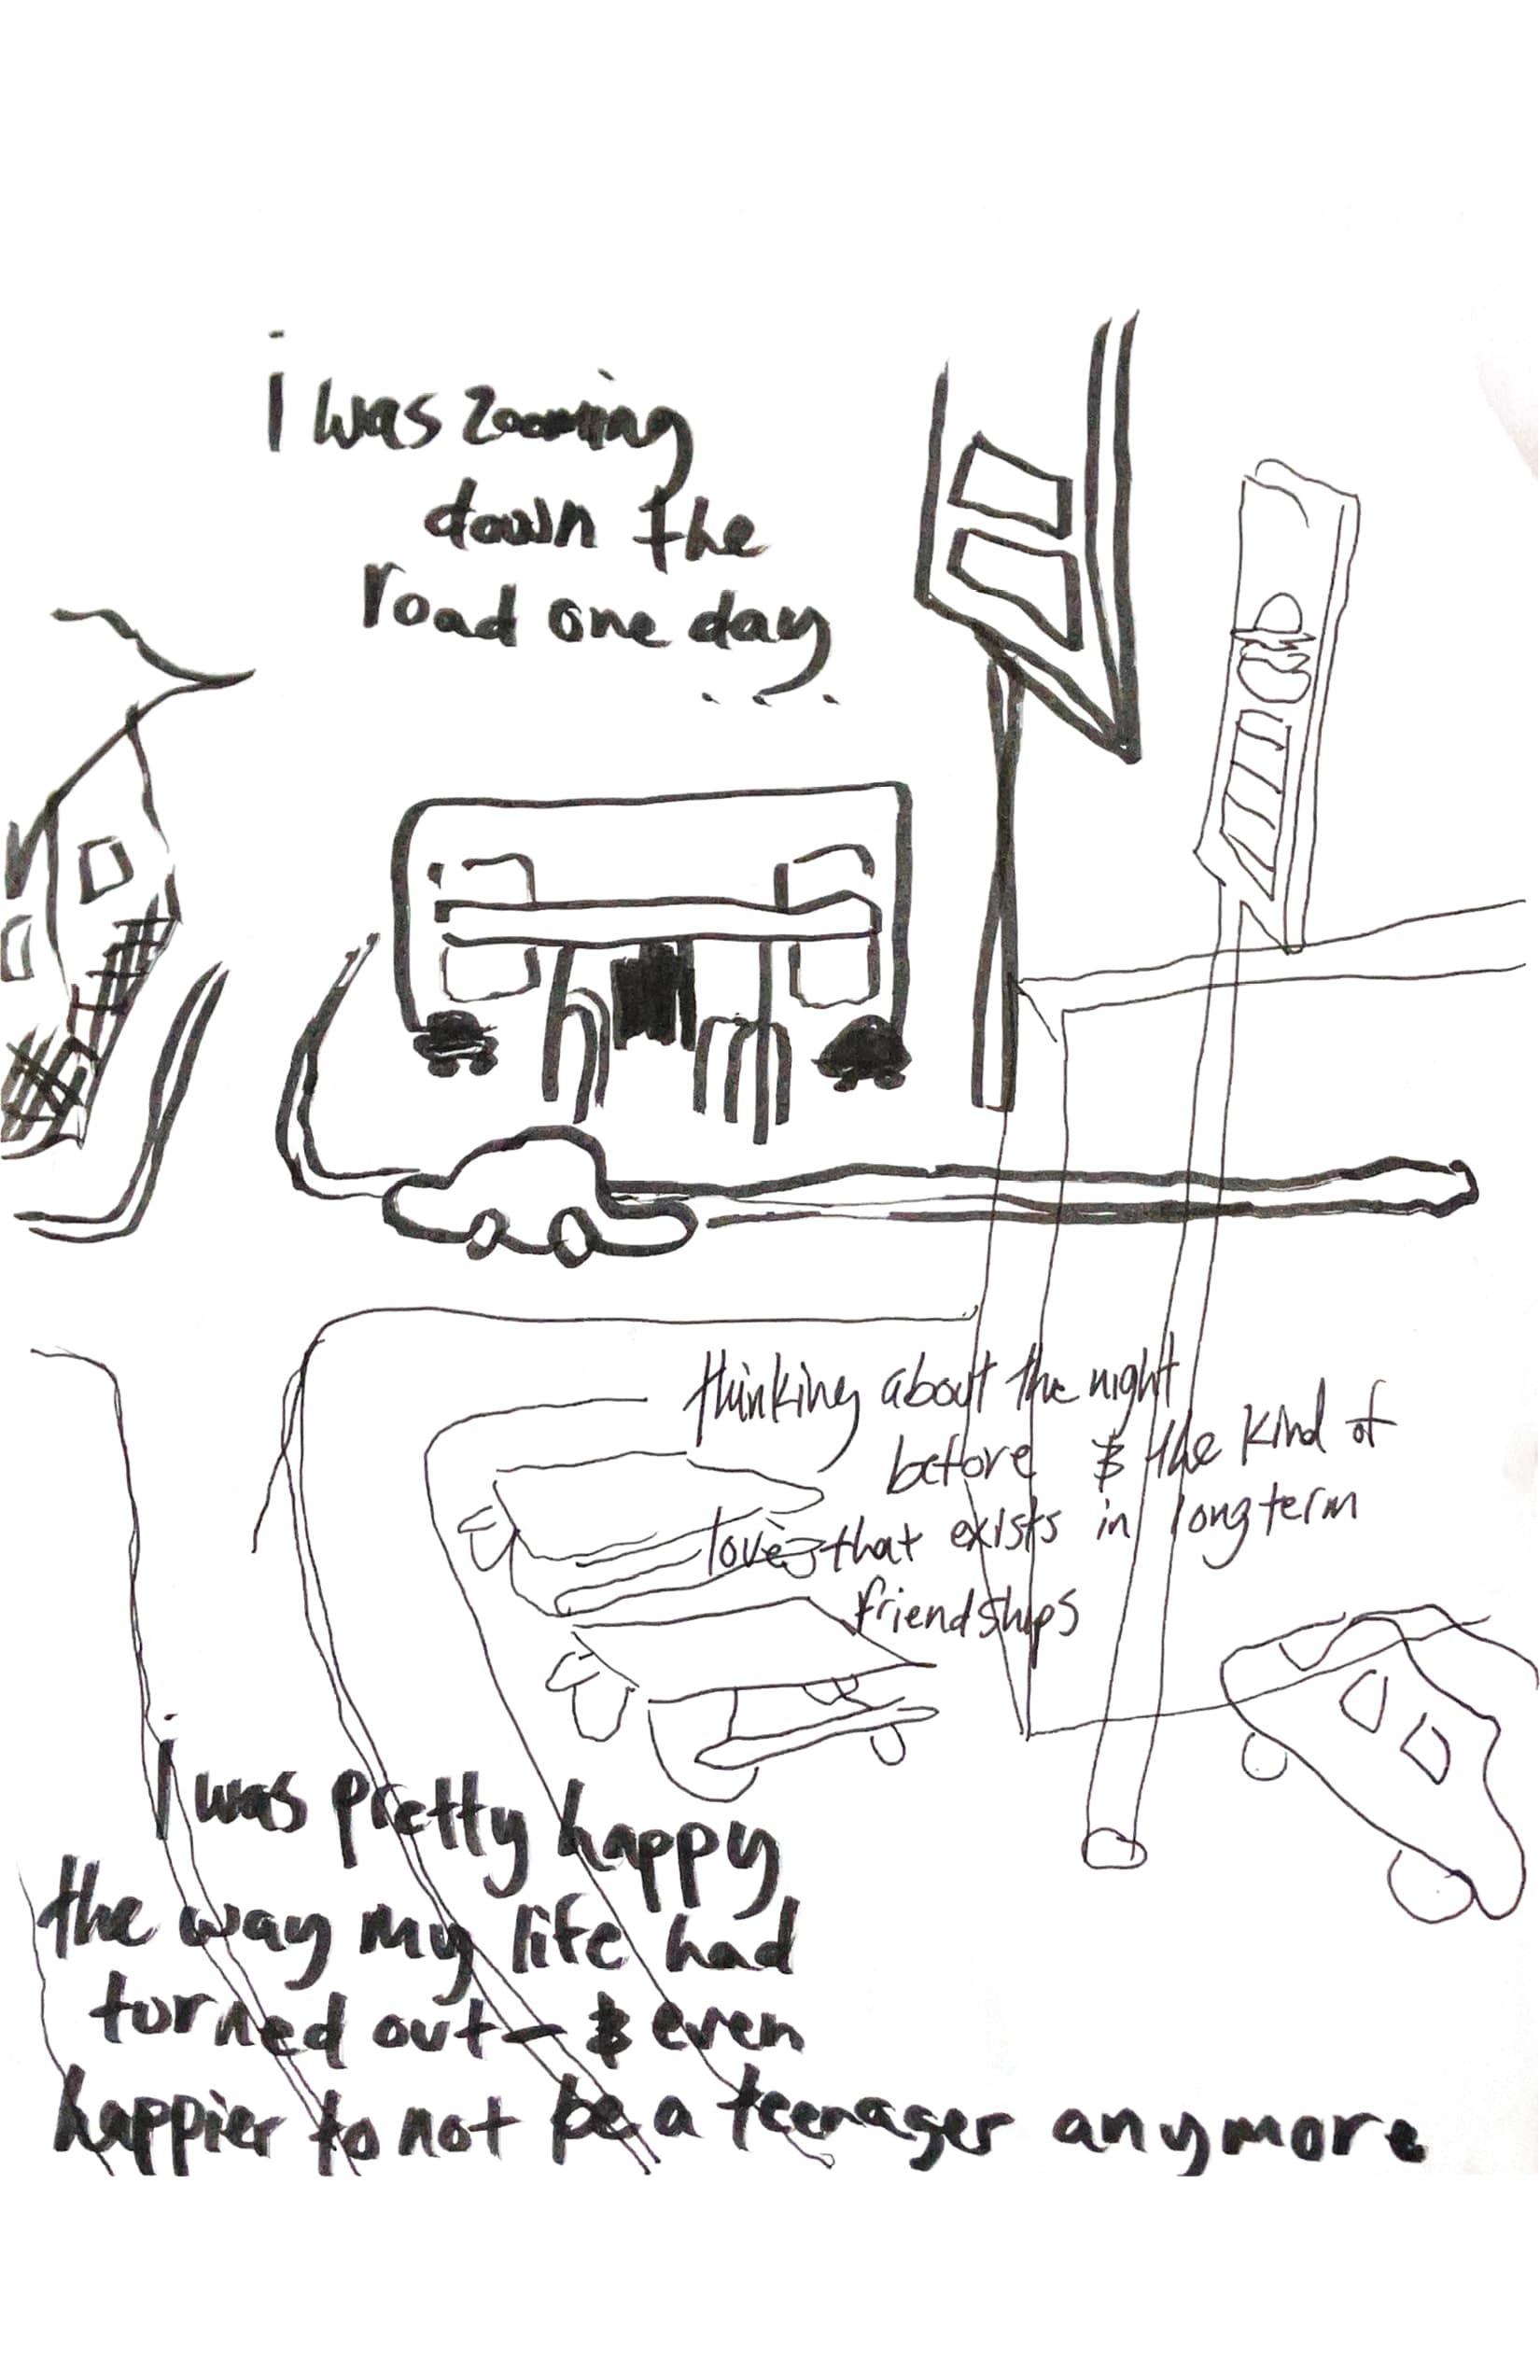 i was zooming
down the
road one day
...
thinking about the night
before & the kind of
love that exists in longterm
friendships
i was pretty happy
the way my life had
turned out — & even
happier to not be a teenager anymore